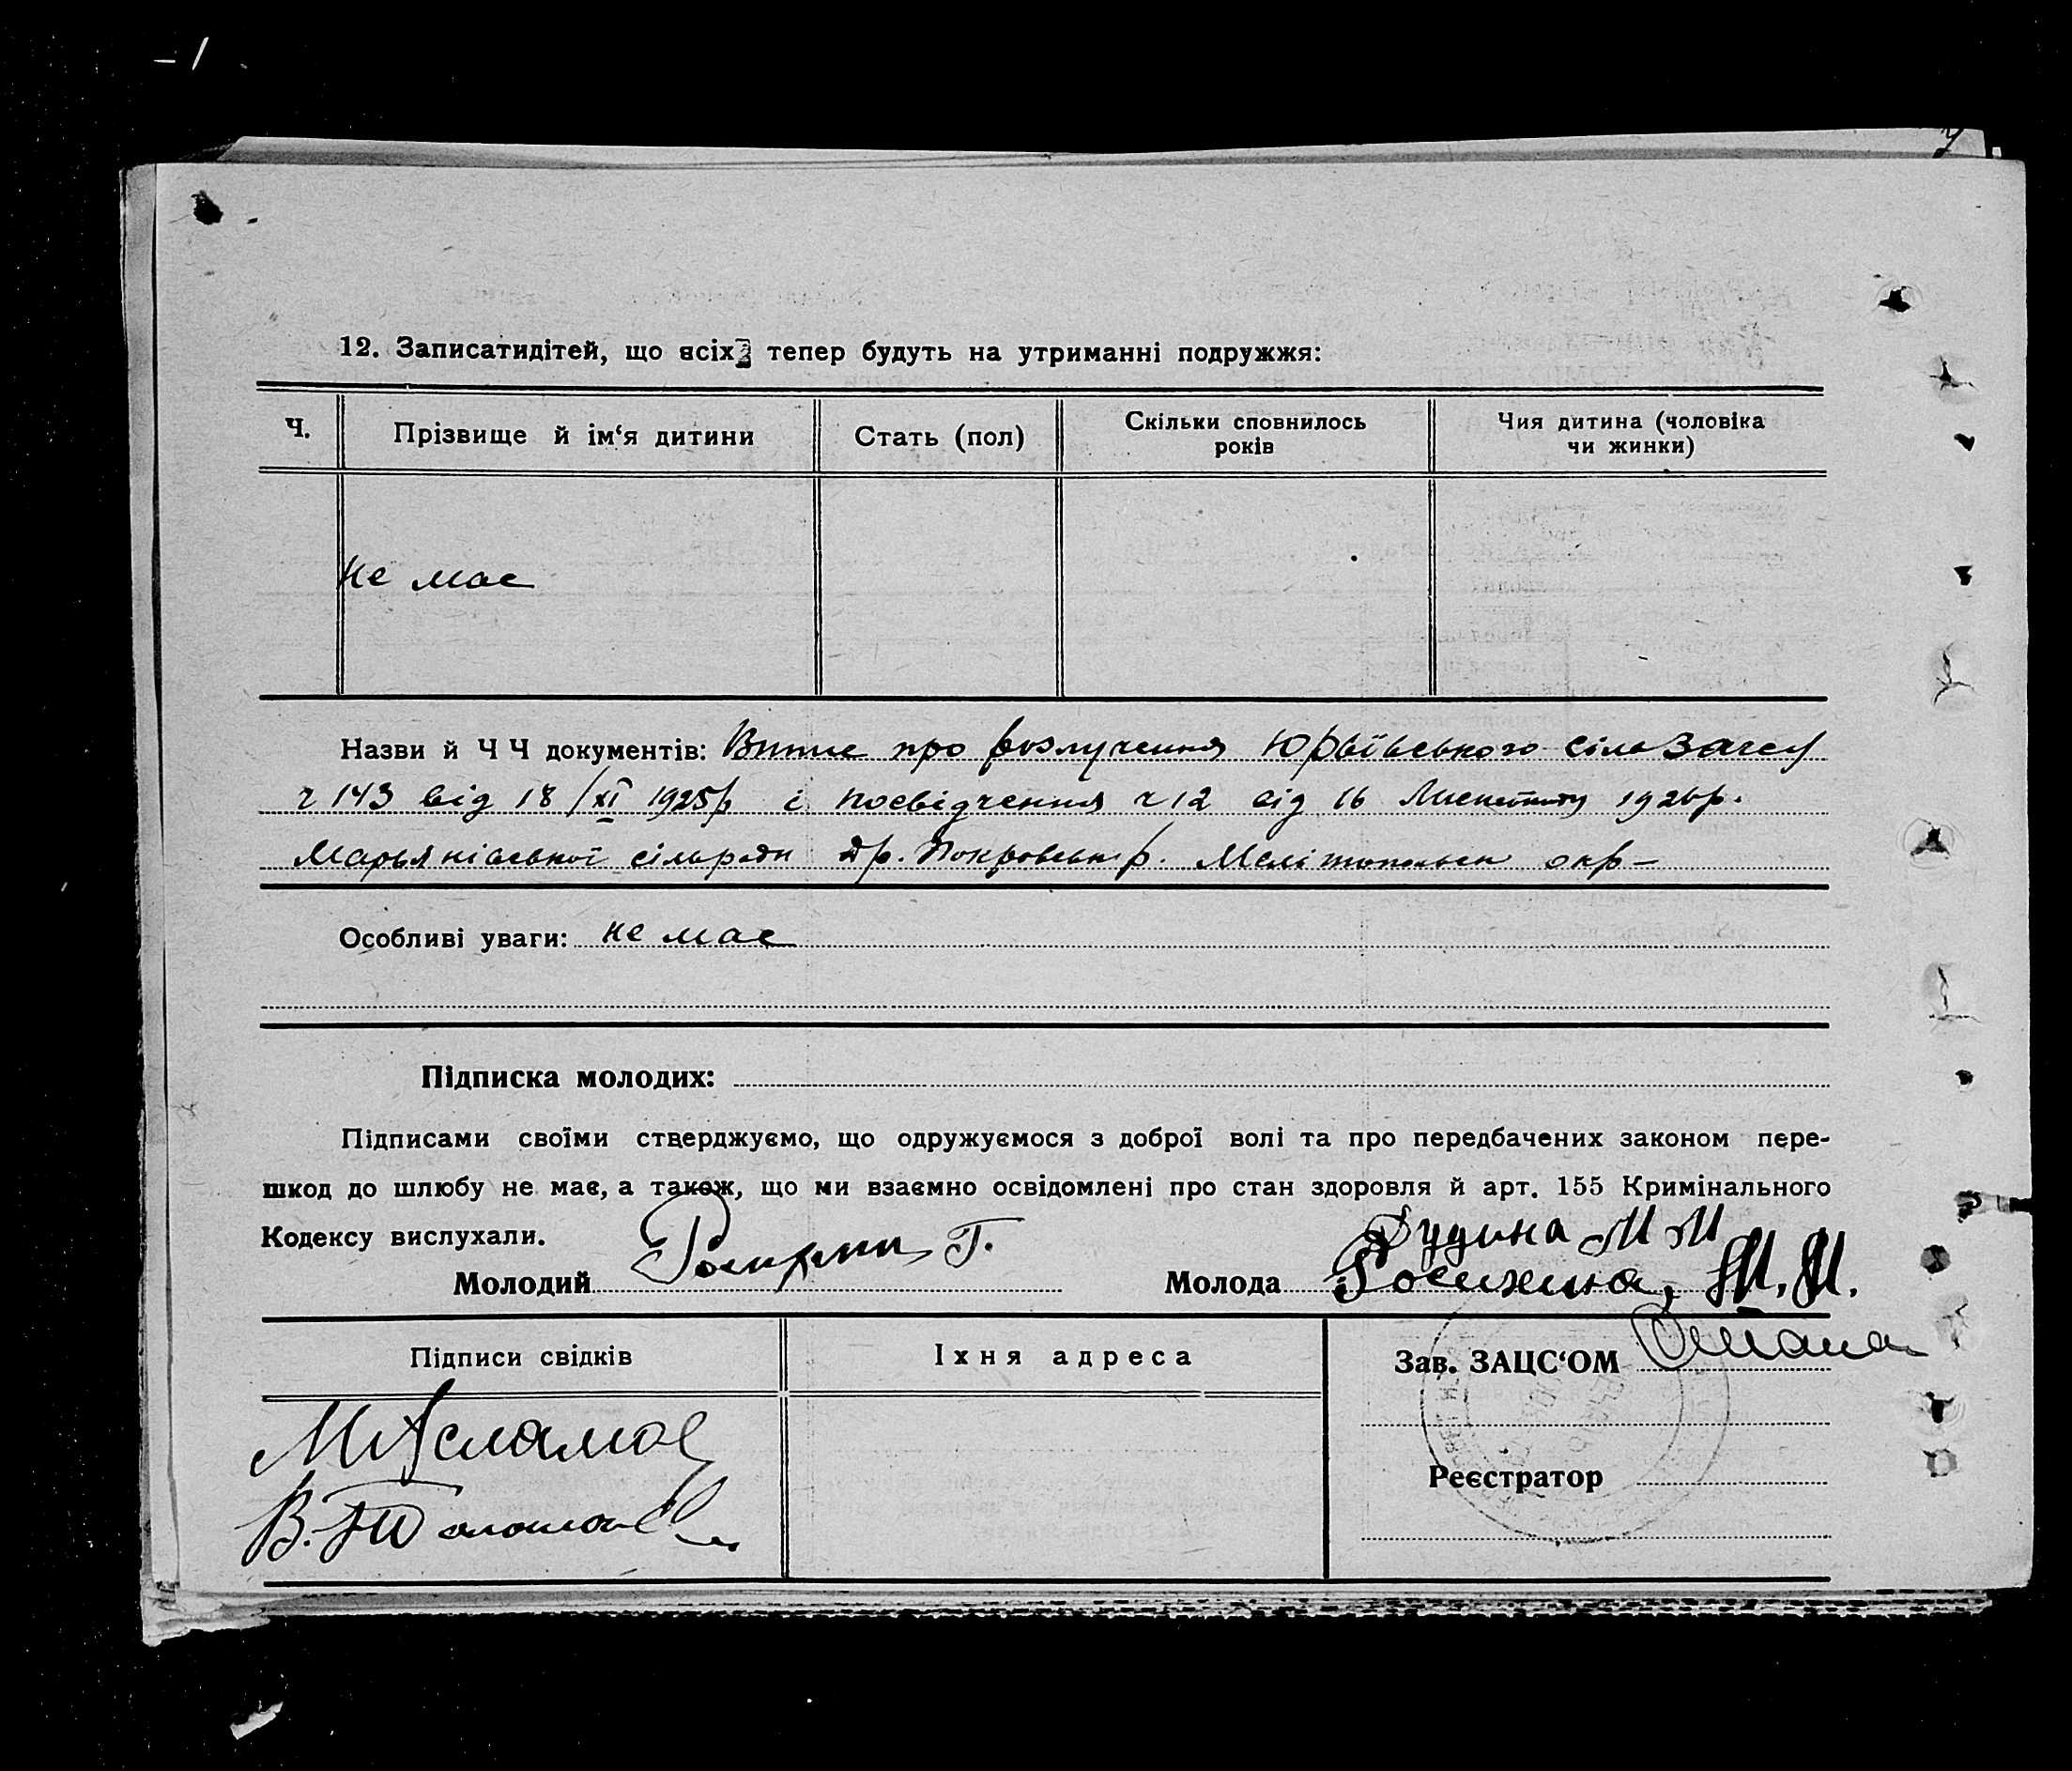 12. Записатидітей, що всіх тепер будуть на утриманні подружжя:
Ч.
Прізвище й ім‘я дитини
Стать (пол)
Скільки сповнилось
років
Чия дитина (чоловіка
чи жинки)
не має
Назви й Ч Ч документів: Витис про розлучення Юрьївського сільЗагсу
ч 143 від 18/XI 1925р і посвідчення ч 12 від 16 Лист 1926р.
Марьянівської сільради Др. Покровськ р. Мелітопольськ окр–
Особливі уваги: не має
Підписка молодих:
Підписами своїми стверджуємо, що одружуємося з доброї волі та про передбачених законом пере-
шкод до шлюбу не має, а також, що ми взаємно освідомлені про стан здоровля й арт. 155 Кримінального
Кодексу вислухали.
Молодий Г.
Дудина М М
Молода Росихина, М. М.
Підписи свідків
Їхня адреса
Зав. ЗАЦС‘ОМ
Реєстратор